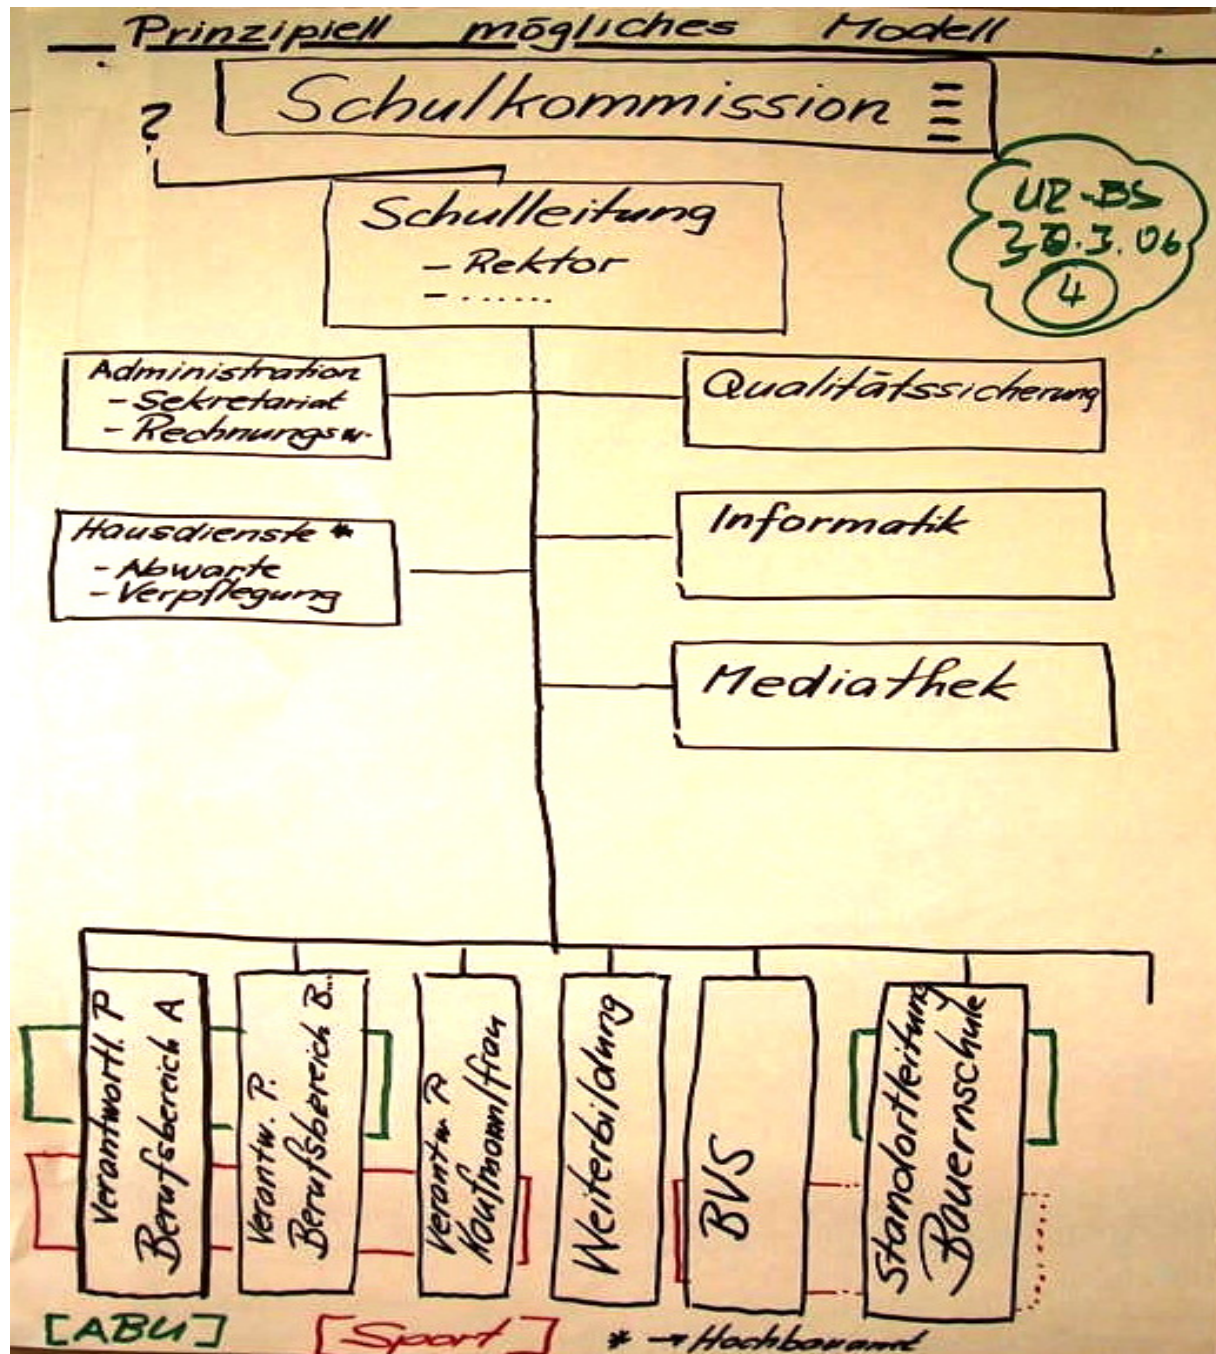 Prinzipiell mögliches Modell
Schulkommission
?
UR-BS
30.3.06
4
Schulleitung
- Rektor
- ......
Administration
- Sekretariat
- Rechnungsw.
Qualitätssicherung
Hausdienste *
- Abwarte
- Verpflegung
Informatik
Mediathek
Verantwortl. P
Berufsbereich A
Verantw. P.
Berufsbereich B...
Verantw. P
Kaufmann/frau
Weiterbildung
BVS
Standortleitung
Bauernschule
[ABU]
[Sport]
* → Hochbauamt